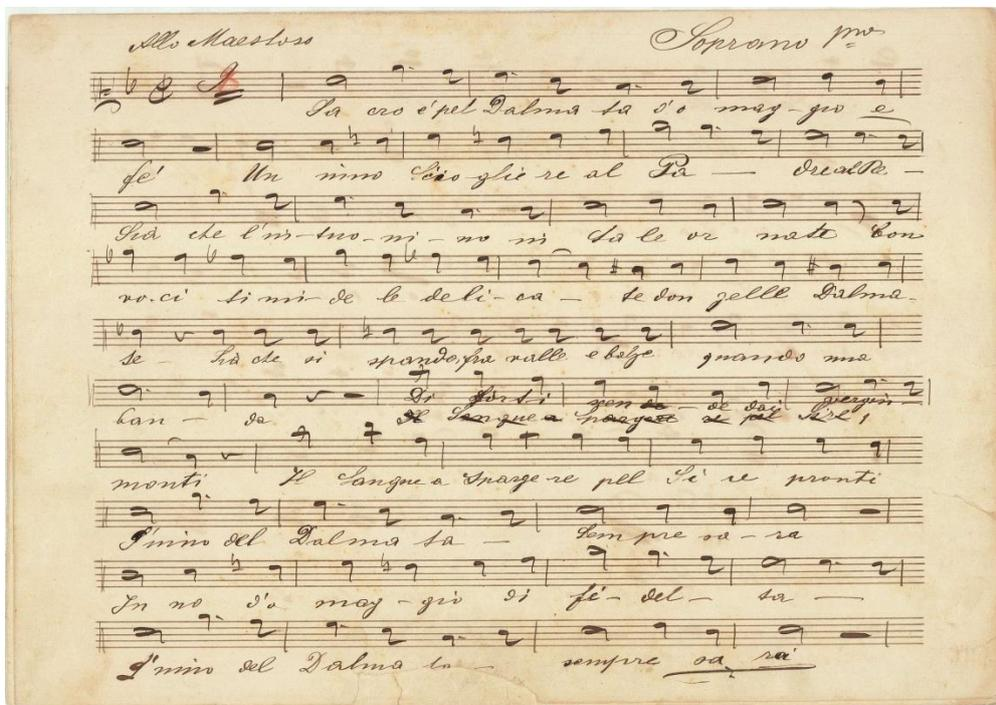 Allo Maestoso Soprano pmo
Sa cro é pel Dalma ta d'o mag-gio e
fé Un inno Scio-glie-re al Pa — dre al Pa —
Già che l'in-tuo-ni-no in ta le or nate Con
vo.ci timi-de le deli-ca — te don zelle Dalma-
te — Già che si spando, fra valle e balze quando una
ban — da Di forti
monti Il Sangue a Sparge-re pel Si re pronti
L'inno del Dalma ta — Sempre sa-ra
In no d'o mag-gio di fi-del- ta —
L'inno del Dalma ta — sempre sa rà